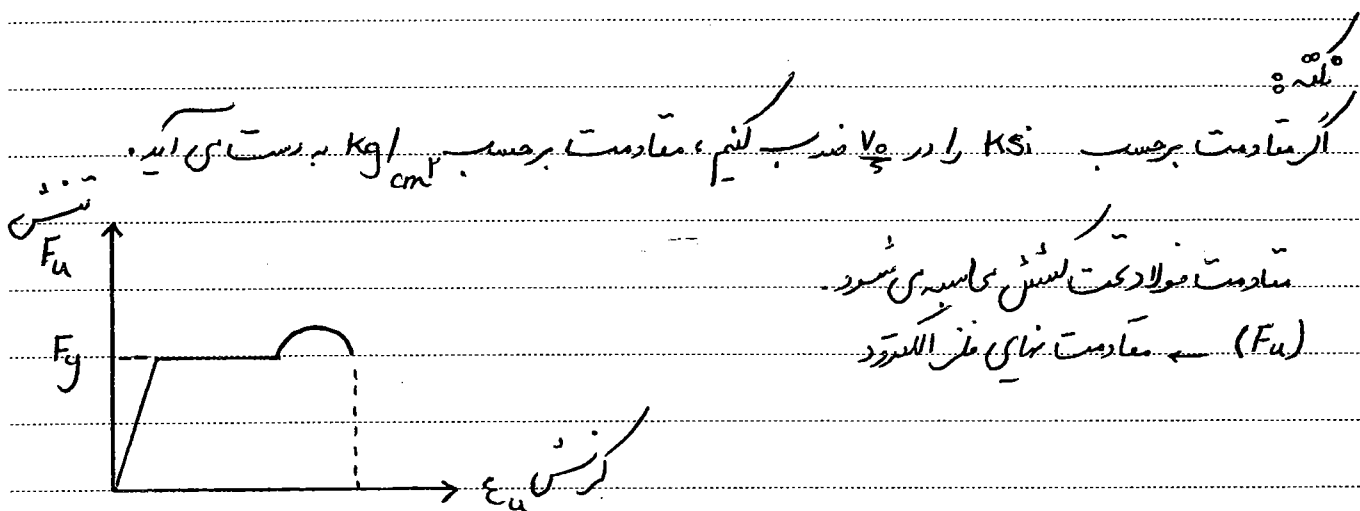 نکته :
اگر مقاومت برحسب Ksi را در ۷۰/۵ ضرب کنیم ، مقاومت برحسب kg/cm۲ به دست می آید .
تنش
Fu
مقاومت فولاد تحت کشش محاسبه می شود .
Fy
(Fu) ← مقاومت نهایی فلز الکترود
کرنش εu